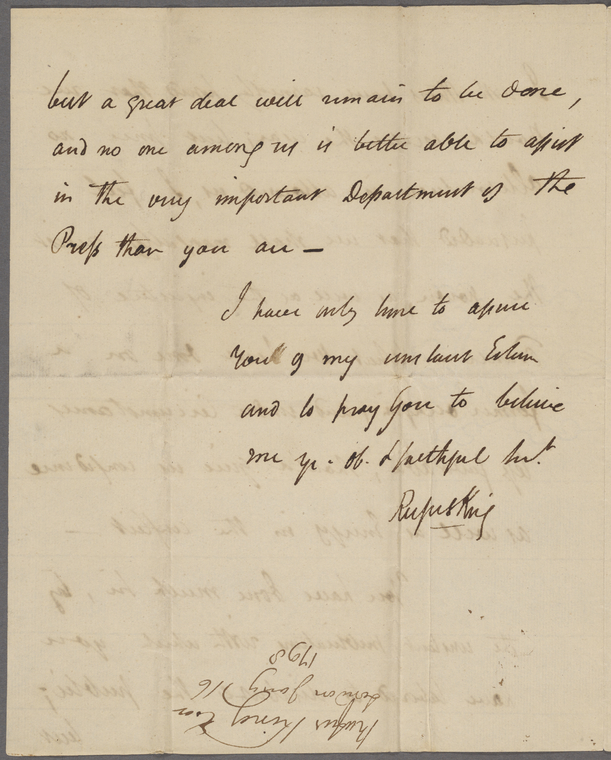 but a great deal will remain to be done,
and no one among us is better able to assist
in the very important Department of the
Press than you are —
I have only time to assure
You of my constant Esteem
and to pray You to believe
me yr. ob. & faithful Svt.
Rufus King
Rufus King Esqr
London Jany 16
1798